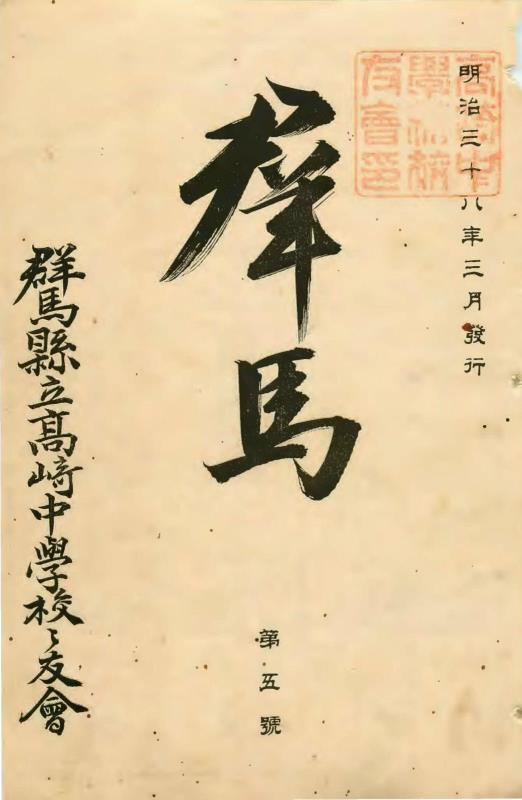 明治三十八年三月發行
高崎中學校校友會印
群馬
第五號
群馬縣立髙﨑中學校〻友會